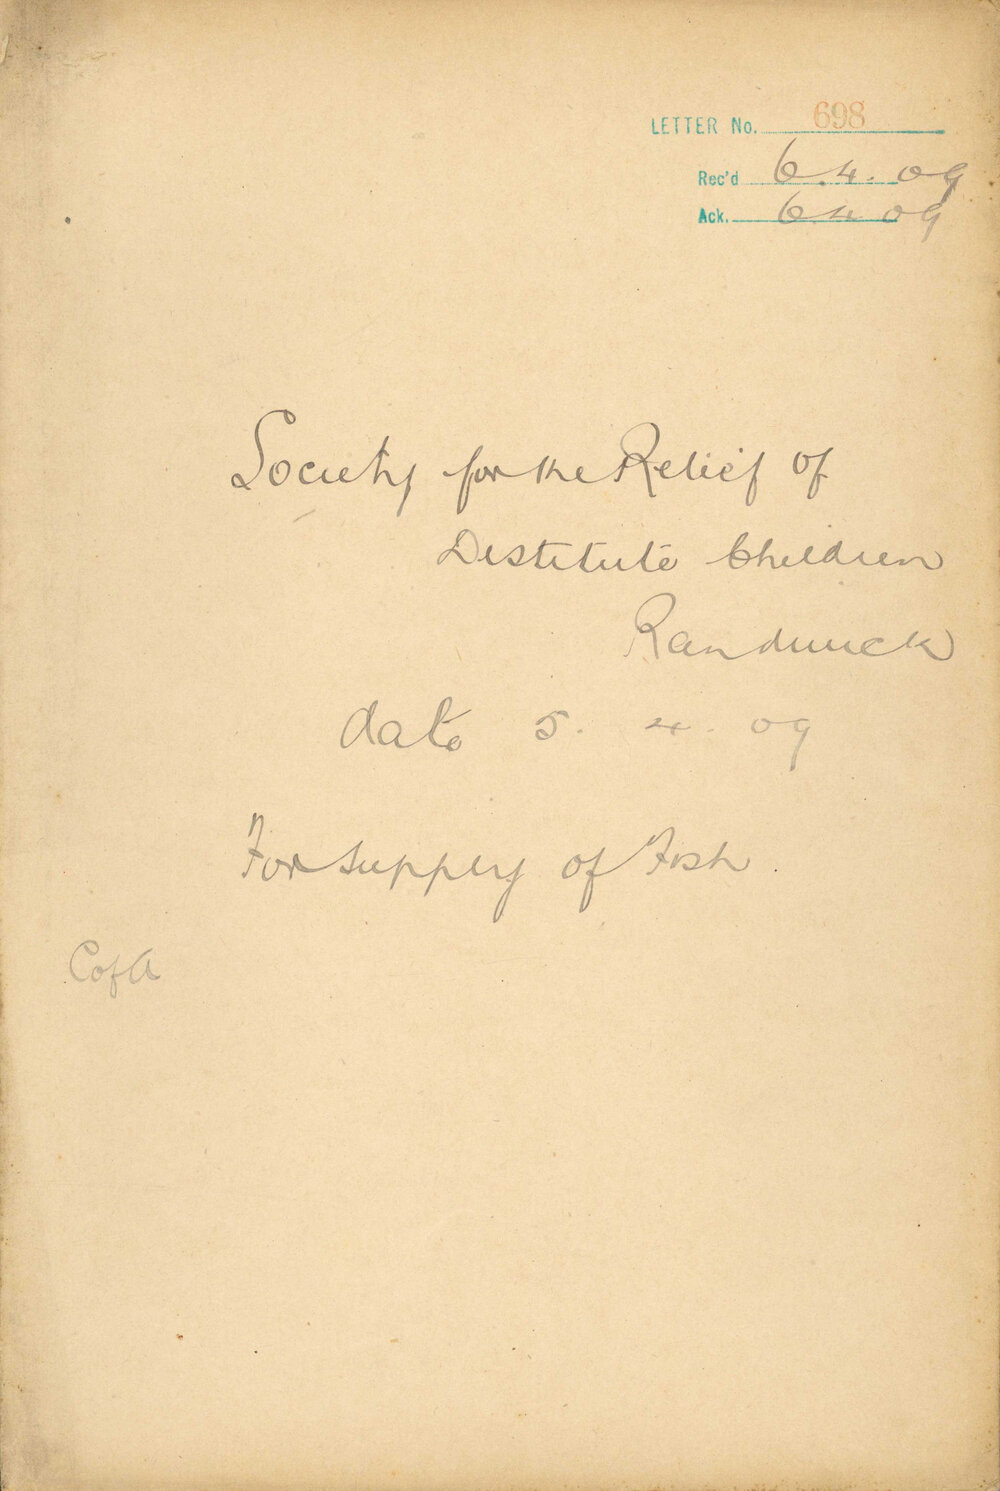 LETTER No. 698
Rec'd 6.4.09
Ack. 6.4.09
Society for the Relief of
Destitute Children
Randwick
date 5.4.09
For supply of Fish
C of A